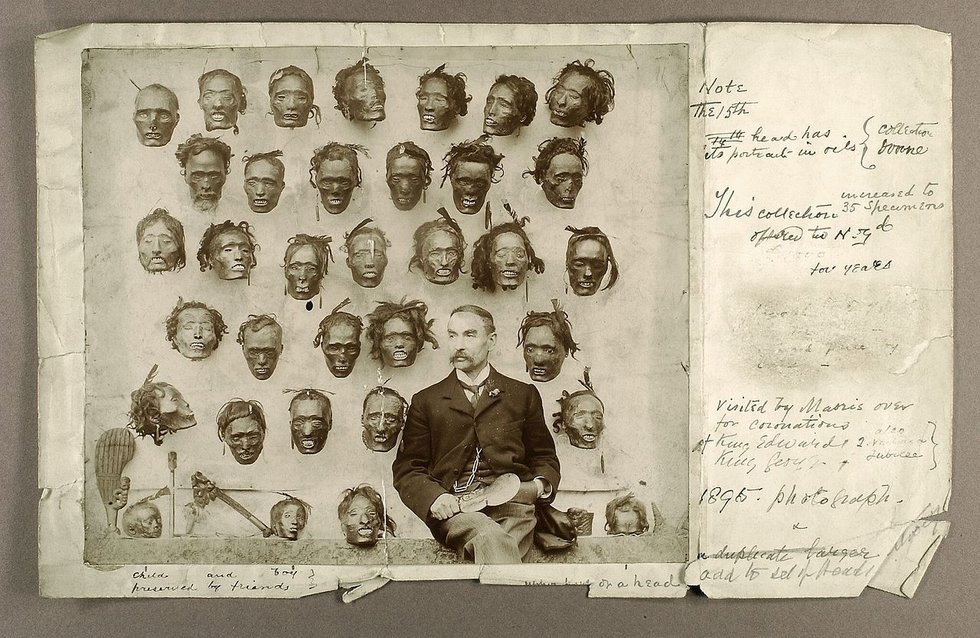 Note
The 15th
14th head has
its portrait in oils { collection
Donne
This collection increased to
35 Specimens
offered to N.
for years
visited by Maoris over
for coronations
of King Edward & 2 also
King George Jubilee
1895. photograph.
&
a duplicate larger
add to set of Heads
child and boy }
preserved by friends
of a head